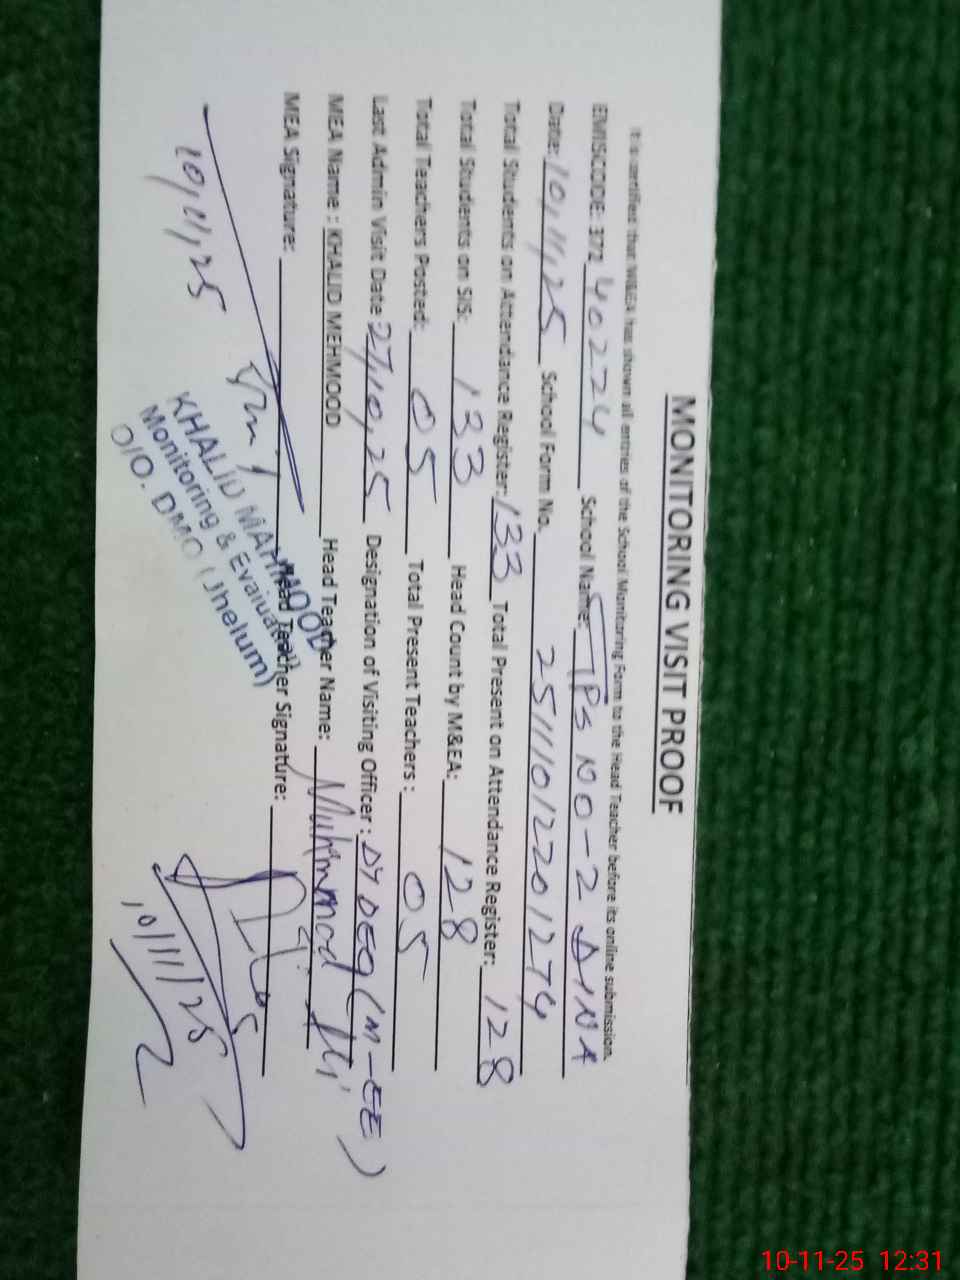 MONITORING VISIT PROOF
It is certified that M&EA has shown all entries of the School Monitoring Form to the Head Teacher before its online submission.
EMISCODE: 372 40224 School Name: GPS NO-2 DINA
Date: 10,11,25 School Form No. 25111012201274
Total Students on Attendance Register: 133 Total Present on Attendance Register: 128
Total Students on SIS: 133 Head Count by M&EA: 128
Total Teachers Posted: 05 Total Present Teachers: 05
Last Admin Visit Date 27,10,25 Designation of Visiting Officer: DY DEO (M-EE)
MEA Name : KHALID MEHMOOD Head Teacher Name: Muhammad
MEA Signature: Head Teacher Signature:
10,11,25
KHALID MAHMOOD
Monitoring & Evaluation
O/O. DMO (Jhelum)
10/11/25
10-11-25 12:31